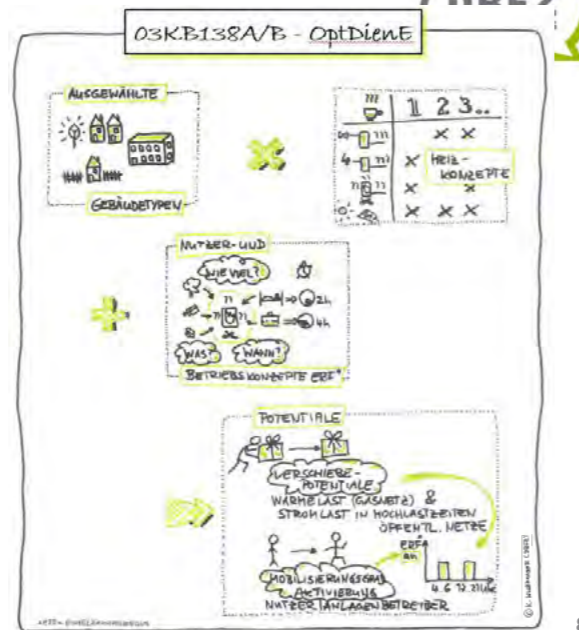 03KB138A/B - OptDienE
AUSGEWÄHLTE
GEBÄUDETYPEN
1 2 3..
HEIZ-
KONZEPTE
NUTZER-UND
WIE VIEL?
2h
4h
WAS? WANN?
BETRIEBSKONZEPTE ERF*
POTENTIALE
VERSCHIEBE-
POTENTIALE
WÄRMELAST (GASNETZ) &
STROMLAST IN HOCHLASTZEITEN
ÖFFENTL. NETZE
MOBILISIERUNGSGRAD
AKTIVIERUNG
NUTZER/ANLAGENBETREIBER